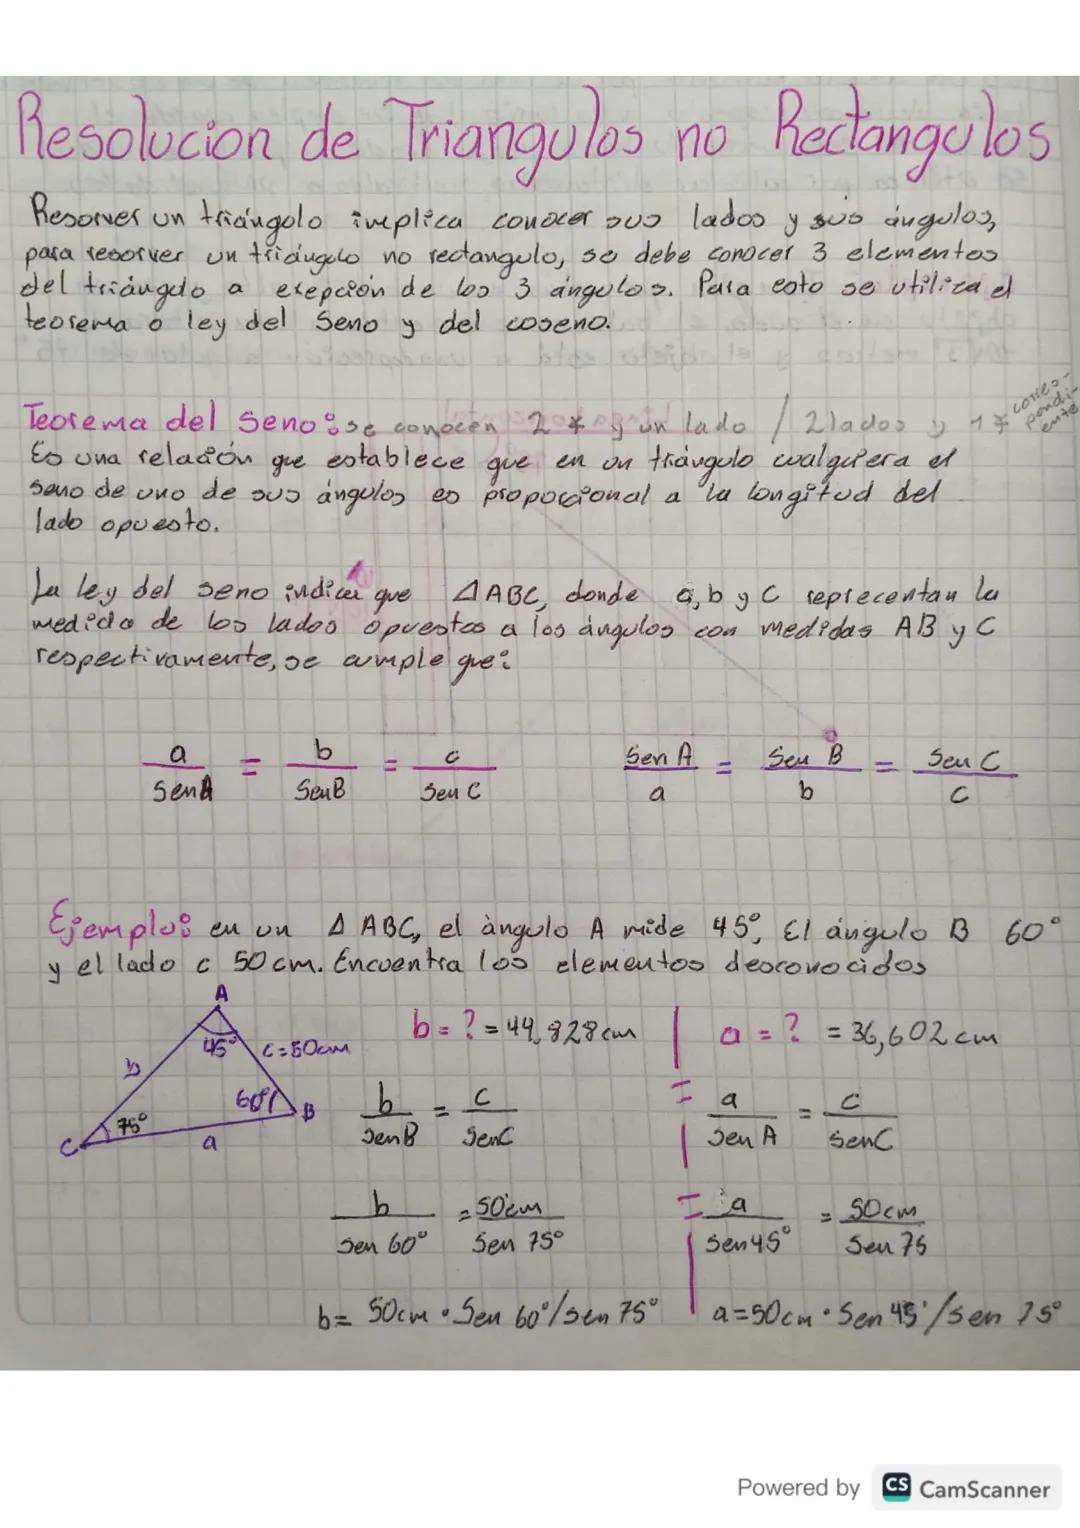 Resolucion de Triangulos no Rectangulos
Resorver un triángulo implica conocer sus lados y sus ángulos,
para resorver un triángulo no rectangulo, se debe conocer 3 elementos
del triángulo a exepción de los 3 ángulos. Para esto se utiliza el
teorema o ley del Seno y del coseno.
Teorema del Seno: se conocen 2 ∡ y un lado / 2 lados y 1 ∡ corres-
pondi-
ente
Es una relación que establece que en un triángulo cualquiera el
seno de uno de sus ángulos es proporcional a la longitud del
lado opuesto.
La ley del seno indica que △ABC, donde a, b y C reprecentan la
medida de los lados opuestos a los ángulos con medidas AB y C
respectivamente, se cumple que:
a = b = c Sen A = Sen B = Sen C
Sen A Sen B Sen C a b c
Ejemplo: en un △ ABC, el àngulo A mide 45°, El ángulo B 60°
y el lado c 50cm. Encuentra los elementos desconocidos
A
45° c=50cm
b
60° B
75°
C a
b = ? = 44,828cm
b = c
Sen B Sen C
b = 50cm
Sen 60° Sen 75°
b = 50cm · Sen 60°/sen 75°
a = ? = 36,602 cm
= a = c
Sen A Sen C
= a = 50cm
Sen 45° Sen 75
a = 50cm · Sen 45°/sen 75°
Powered by CS CamScanner